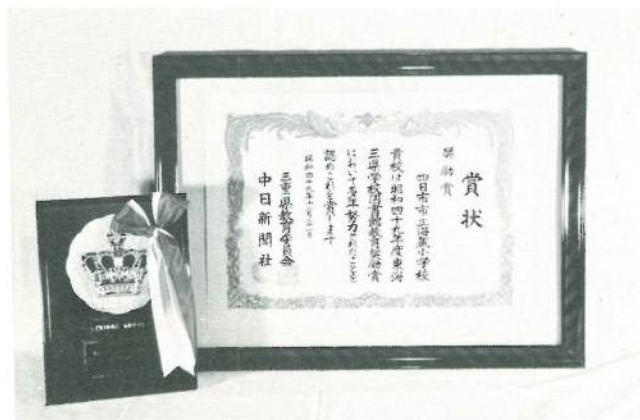 賞状
奨励賞
四日市市立海蔵小学校
貴校は昭和四十九年度東海
三県学校図書館教育奨励賞
において多年努力されたことを
認めこれを賞します
昭和四十九年
三重県教育委員会
中日新聞社